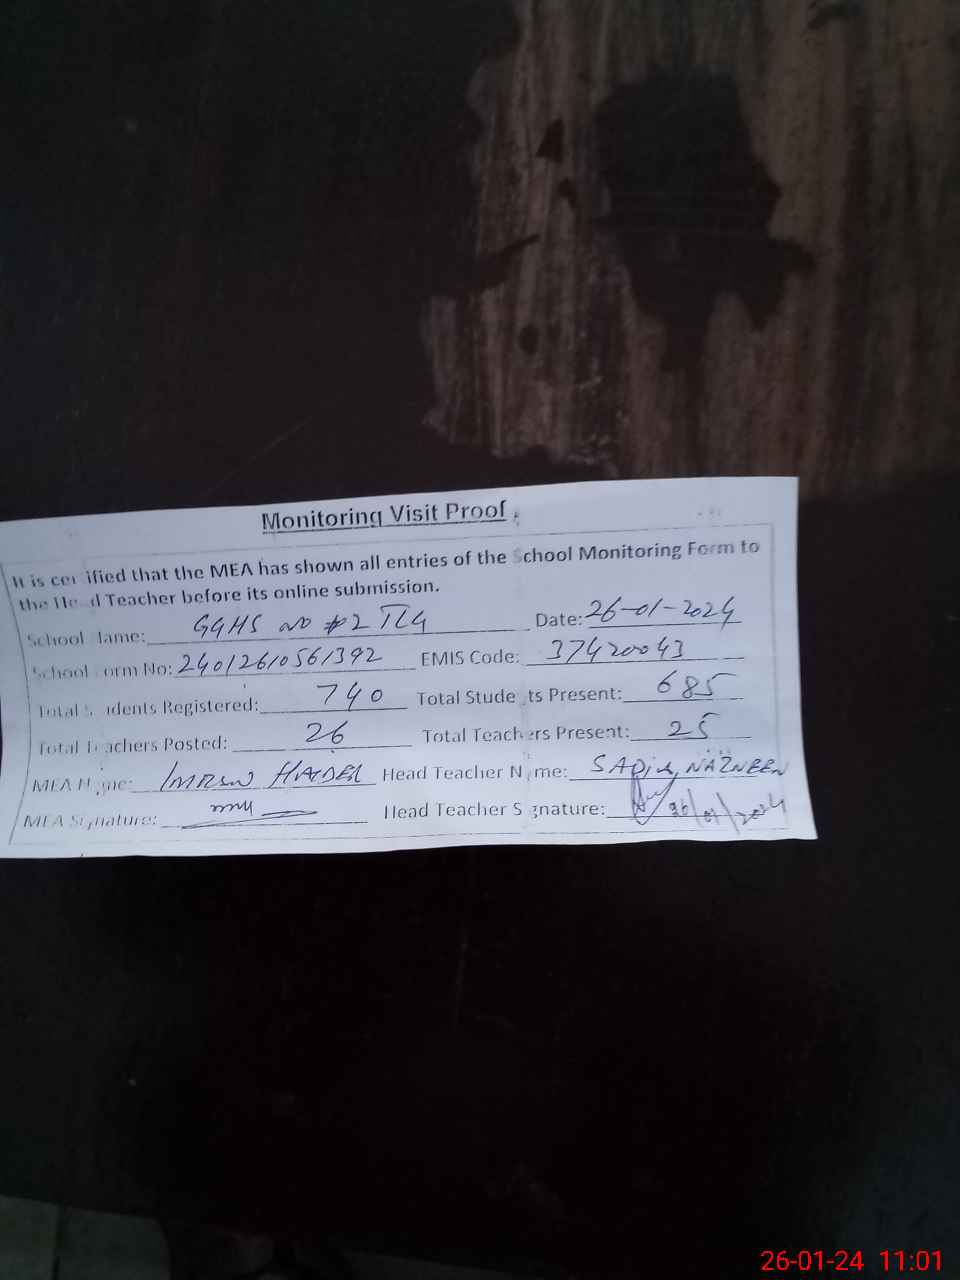 Monitoring Visit Proof
It is certified that the MEA has shown all entries of the School Monitoring Form to
the Head Teacher before its online submission.
School Name: GGHS no #2 TLG Date: 26-01-2024
School Form No: 24012610561392 EMIS Code: 37420043
Total Students Registered: 740 Total Students Present: 685
Total Teachers Posted: 26 Total Teachers Present: 25
MEA Name: IMRAN HAIDER Head Teacher Name: SADIA NAZNEEN
MEA Signature: Head Teacher Signature: 26/01/2024
26-01-24 11:01